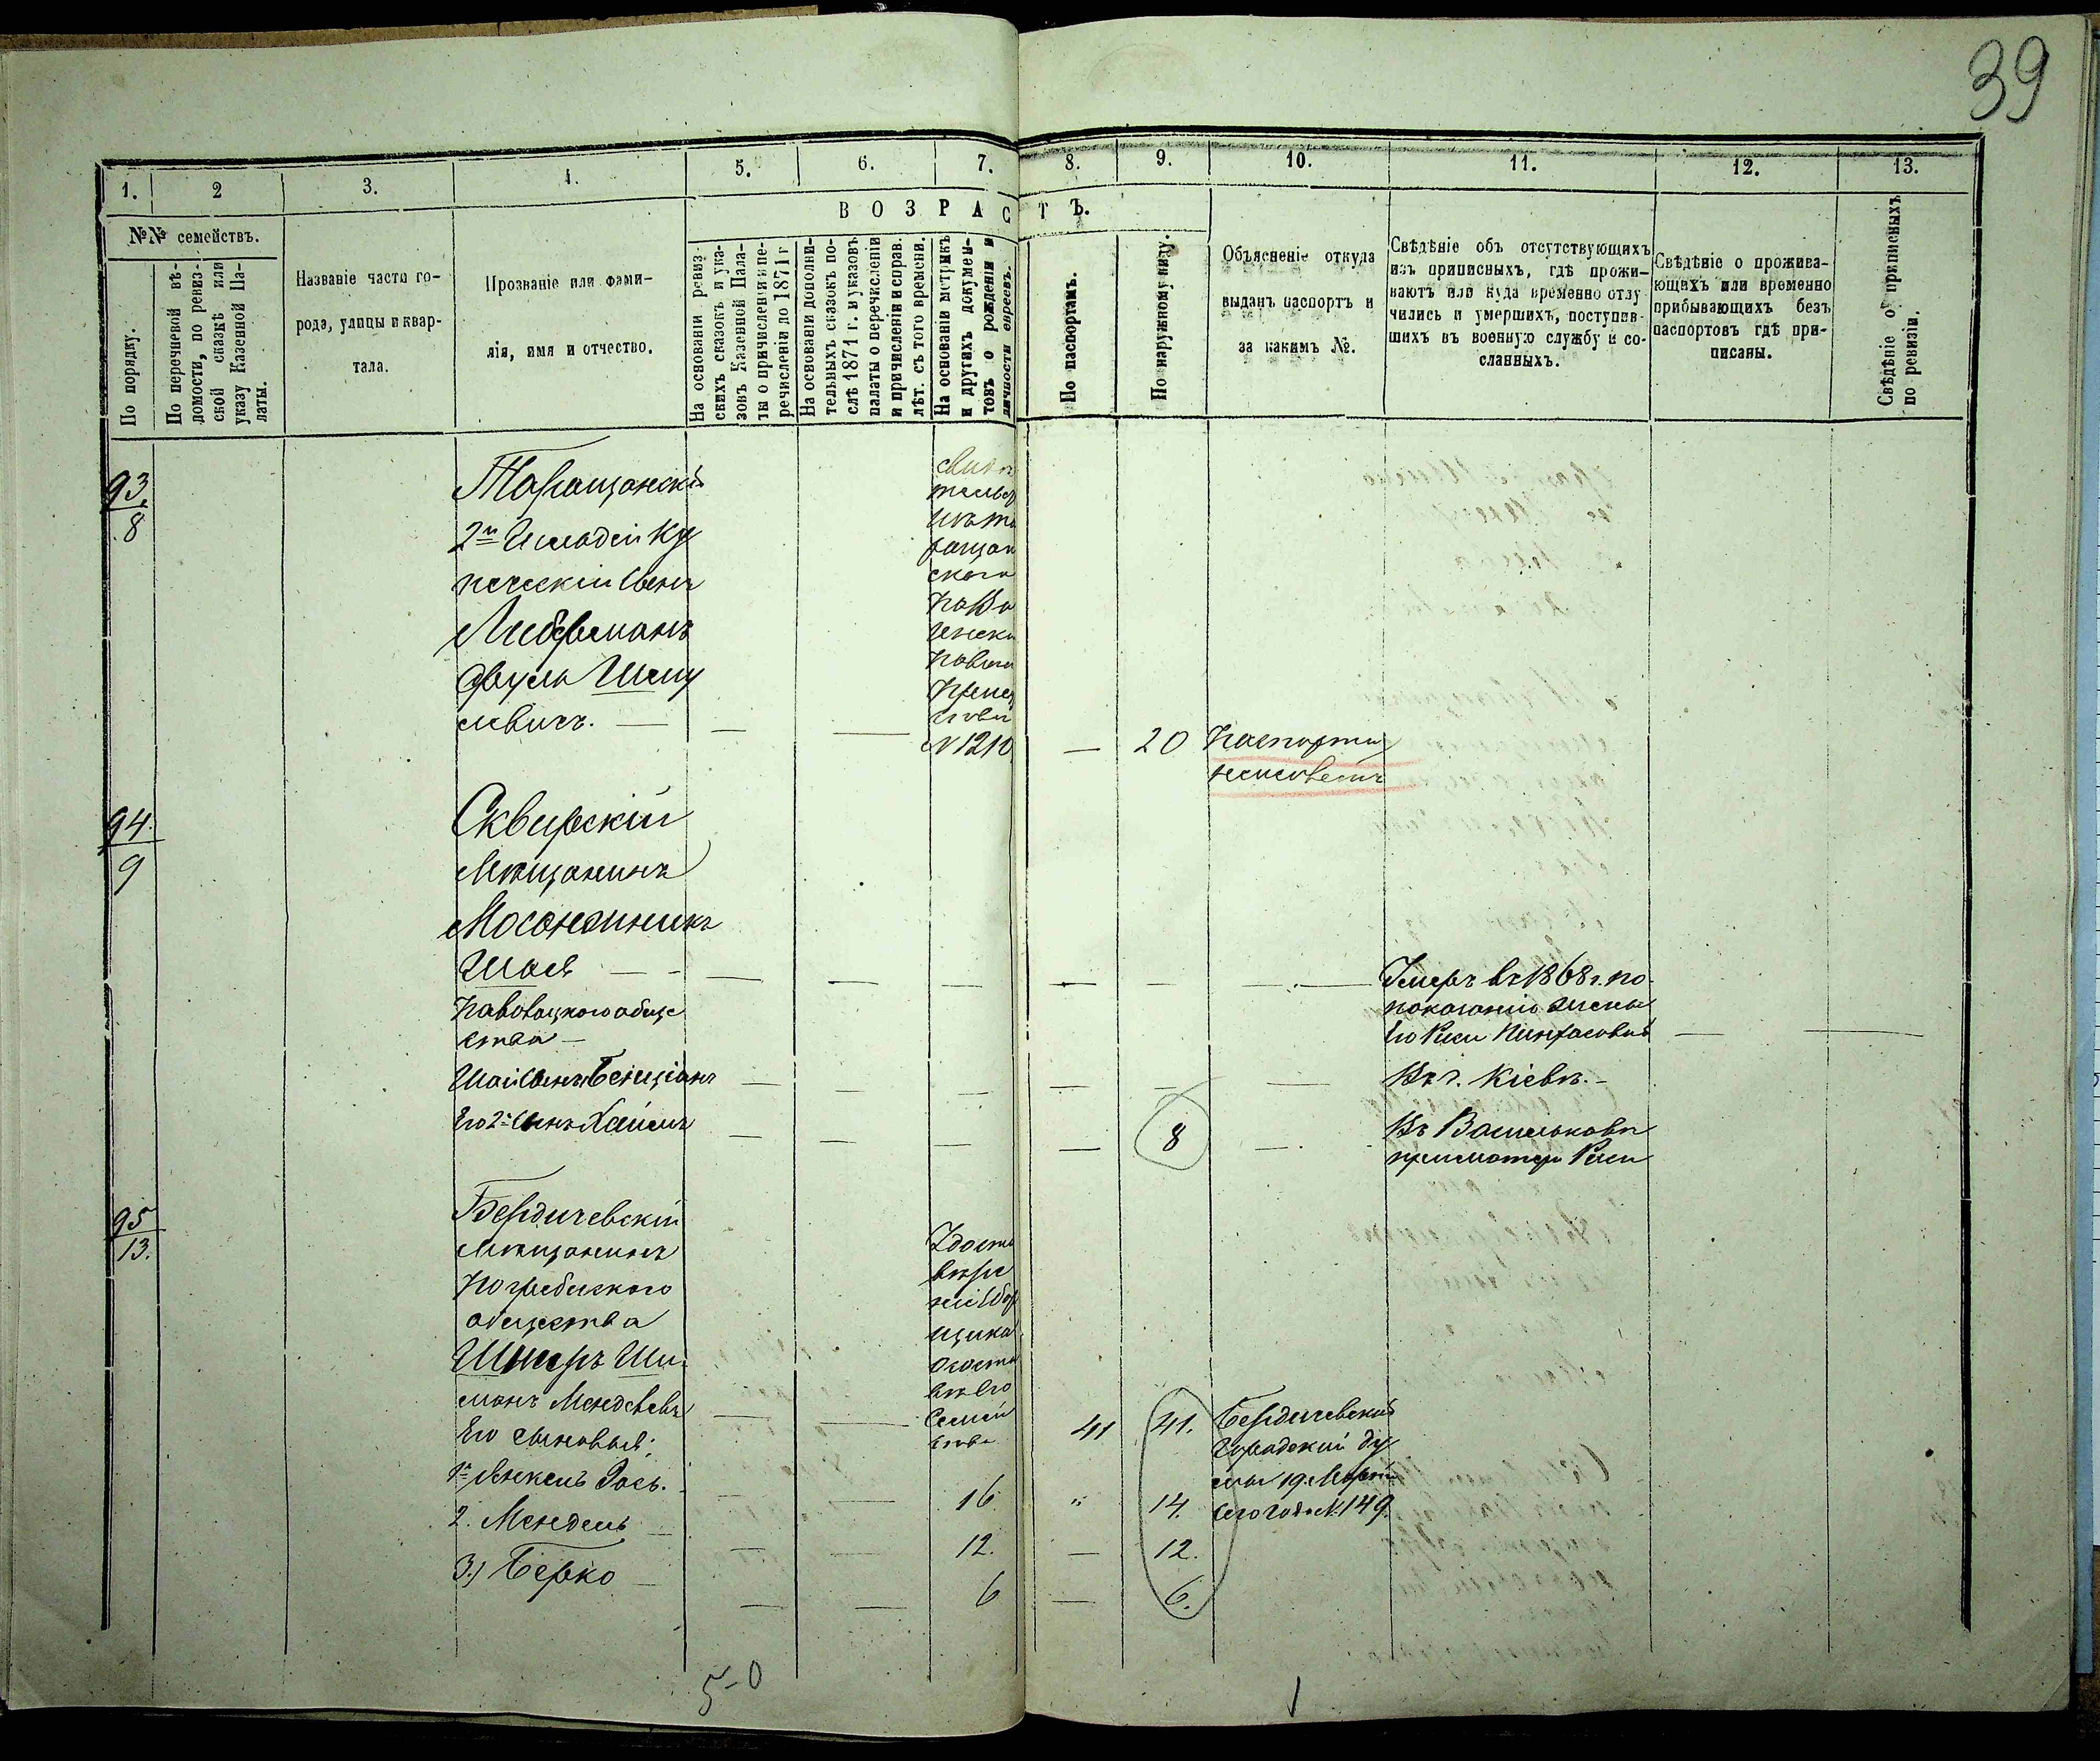 39
1. 2 3. 4. 5. 6. 7. 8. 9. 10. 11. 12. 13.
№№ семействъ.
По порядку.
По перечневой вѣ-
домости, по ревиз-
ской сказкѣ или
указу Казенной Па-
латы.
Названіе части го-
рода, улицы и квар-
тала.
Прозваніе или фами-
лія, имя и отчество.
ВОЗРАСТЪ.
На основаніи ревиз-
скихъ сказокъ и ука-
зовъ Казенной Пала-
ты о причисленіи и пе-
речисленіи до 1871 г
На основаніи дополни-
тельныхъ сказокъ по-
слѣ 1871 г. и указовъ
палаты о перечисленіи
и причисленіи и справ.
лѣт. съ того времени.
На основаніи метрикъ
и другихъ докумен-
товъ о рожденіи и
личности евреевъ.
По паспортамъ.
По наружному виду.
Объясненіе откуда
выданъ паспортъ и
за какимъ №.
Свѣдѣніе объ отсутствующихъ
изъ приписныхъ, гдѣ прожи-
ваютъ или куда временно отлу
чились и умершихъ, поступив-
шихъ въ военную службу и со-
сланныхъ.
Свѣдѣніе о прожива-
ющихъ или временно
прибывающихъ безъ
паспортовъ гдѣ при-
писаны.
Свѣдѣніе о приписныхъ
по ревизіи.
93
8
Таращанскій
2й Гильдіи Ку
печескій Сынъ
Либерманъ
Сруль Шму
левичъ. —
№ 1210
— 20 Паспорта
неимѣетъ
94
9
Сквирскій
Мѣщанинъ
Мосонжникъ
Шая — —
Паволоцкого обще
ства —
Умеръ въ 1868 г. по
показанію жены
Его Реси Пинхасовой
Шаи Сынъ Бенціонъ
Въ г. Кіевѣ. —
Его 2й Сынъ Хаимъ
8
Въ Васильковѣ
при матери Реси
95
13.
Бердичевскій
Мѣщанинъ
Погребиского
общества
Шнеръ Ши-
манъ Менделевъ
Его сыновья:
Удосто
вѣре
ніе Сбор
щика
о соста
вѣ его
Семей
ства
41 41. Бердичевской
Городской Ду
мы 19. Марта
сего года № 149.
1й Янкель Іось. 16 " 14.
2. Мендель — 12. — 12.
3.) Берко — 6 — 6.
5-0
1